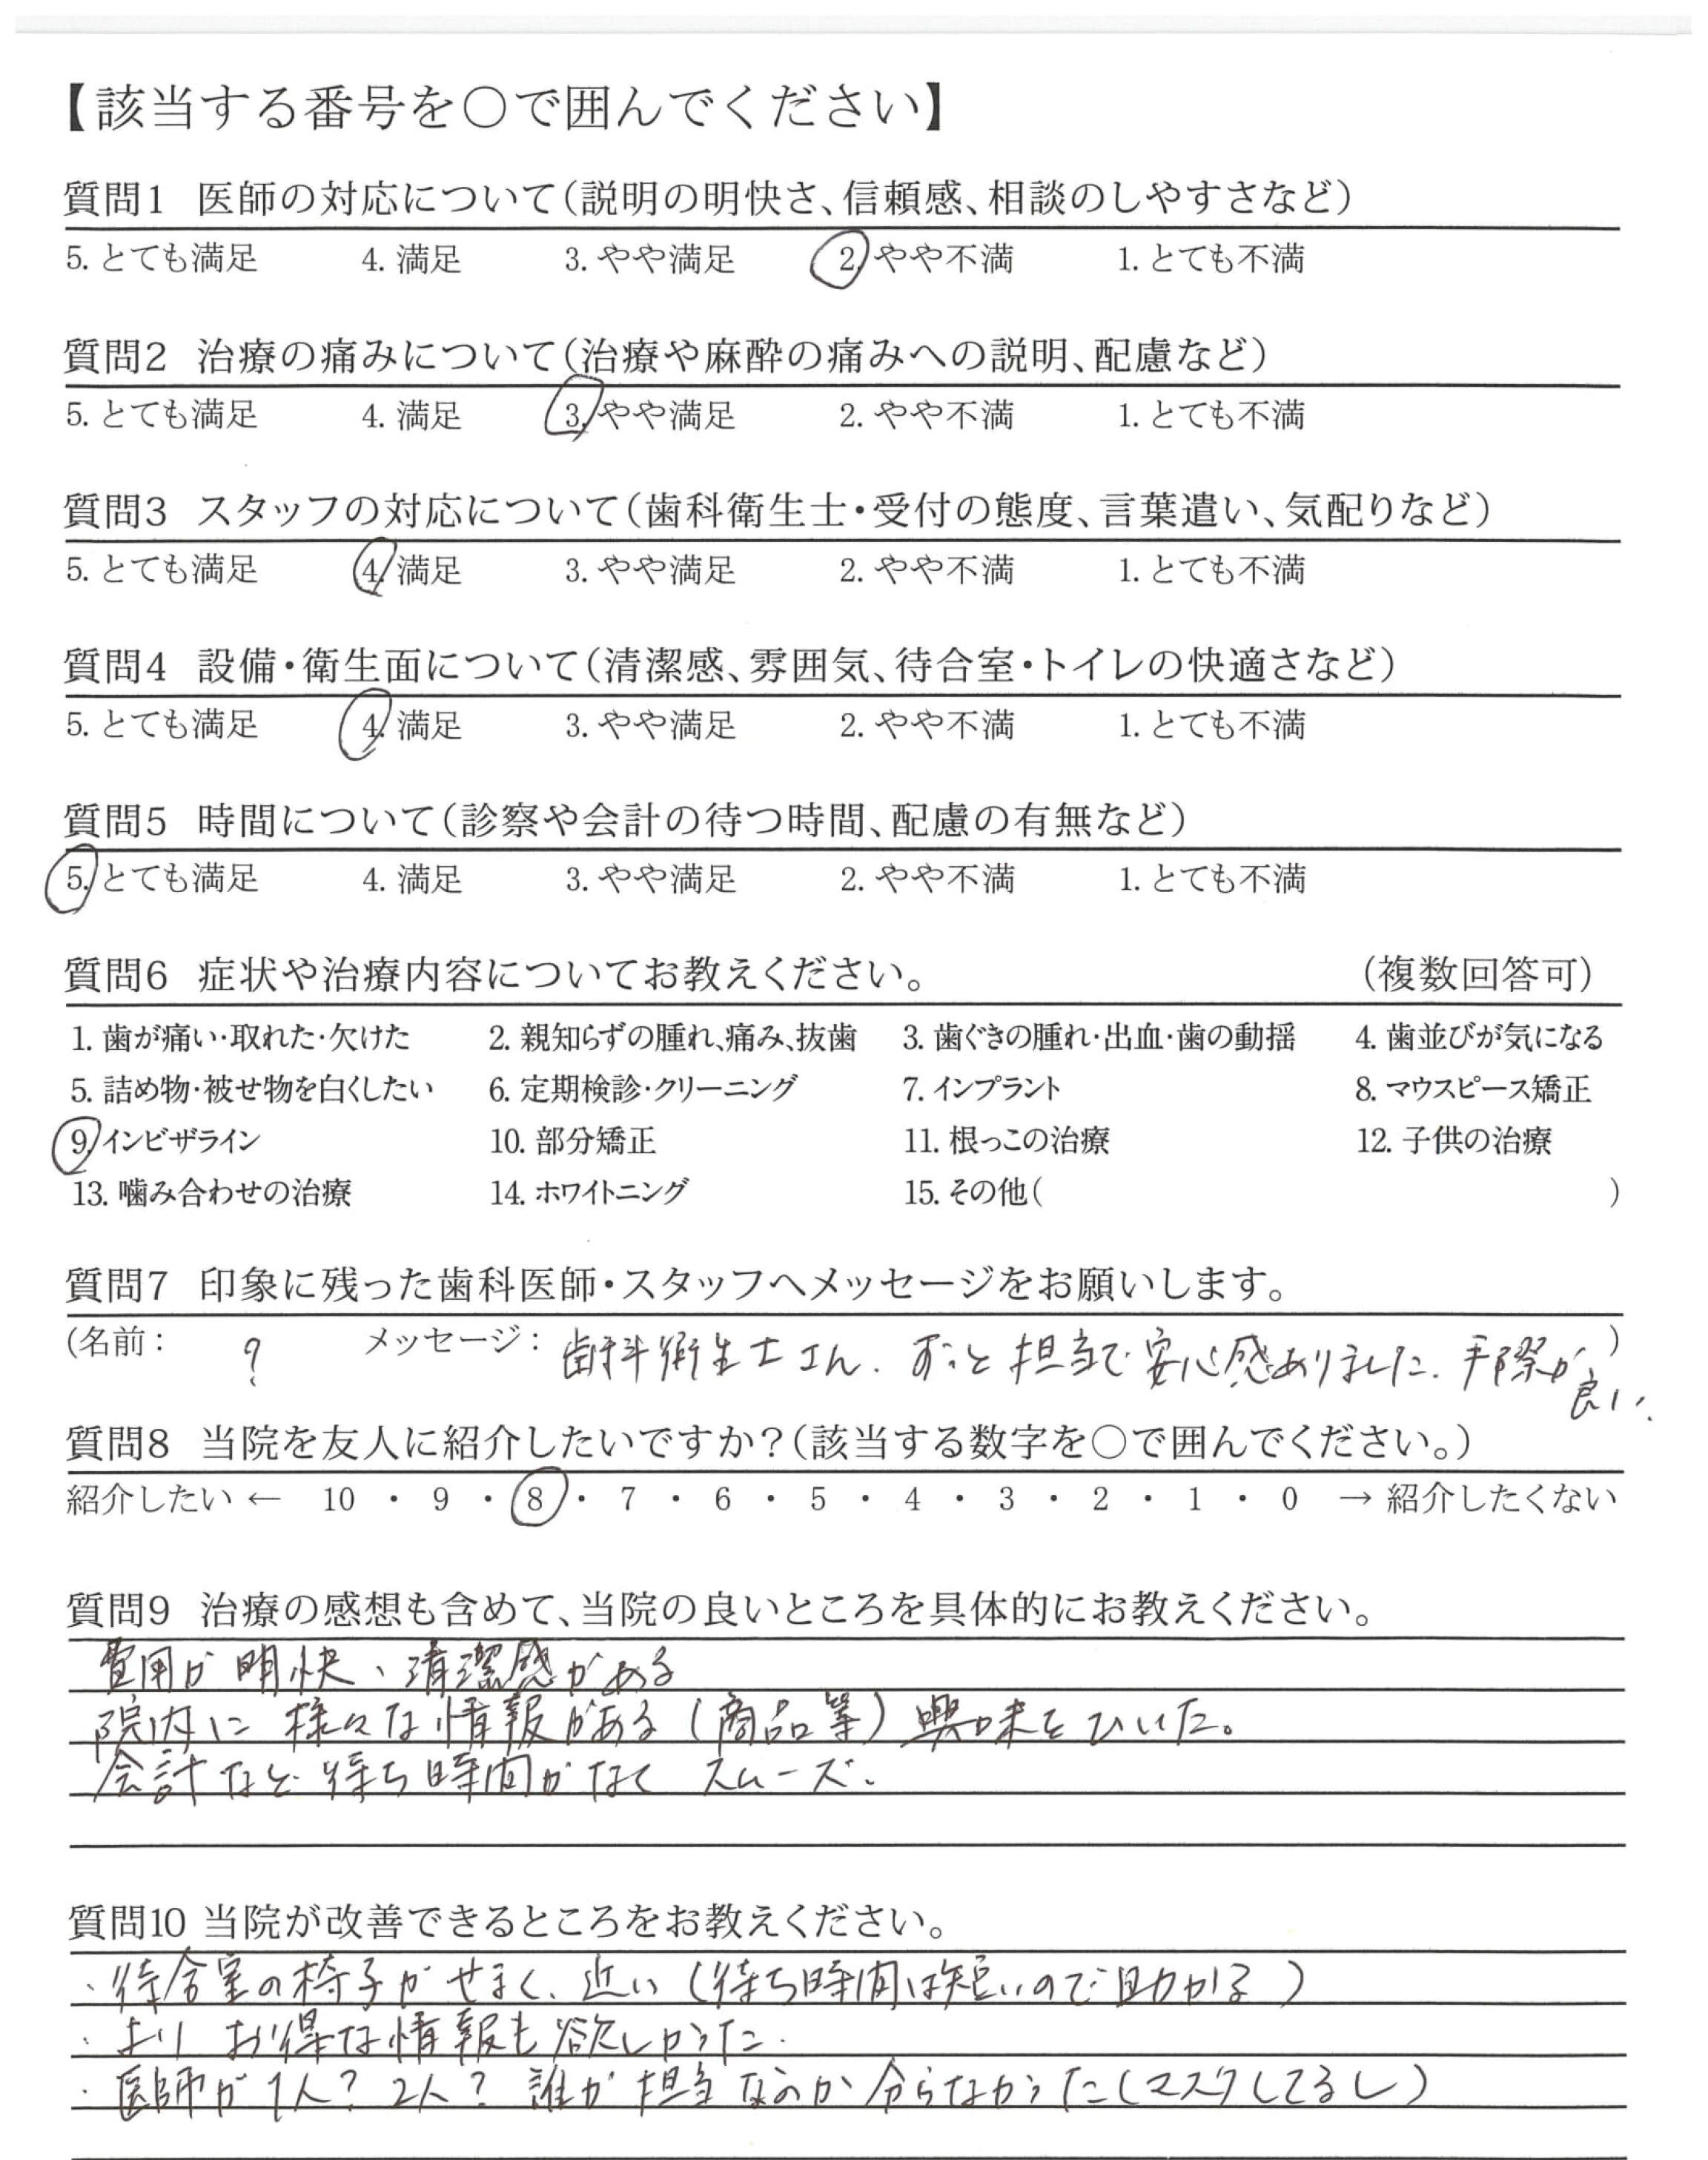 【該当する番号を○で囲んでください】
質問1 医師の対応について(説明の明快さ、信頼感、相談のしやすさなど)
5. とても満足 4. 満足 3. やや満足 2. やや不満 1. とても不満
質問2 治療の痛みについて(治療や麻酔の痛みへの説明、配慮など)
5. とても満足 4. 満足 3. やや満足 2. やや不満 1. とても不満
質問3 スタッフの対応について(歯科衛生士・受付の態度、言葉遣い、気配りなど)
5. とても満足 4. 満足 3. やや満足 2. やや不満 1. とても不満
質問4 設備・衛生面について(清潔感、雰囲気、待合室・トイレの快適さなど)
5. とても満足 4. 満足 3. やや満足 2. やや不満 1. とても不満
質問5 時間について(診察や会計の待つ時間、配慮の有無など)
5. とても満足 4. 満足 3. やや満足 2. やや不満 1. とても不満
質問6 症状や治療内容についてお教えください。 (複数回答可)
1. 歯が痛い・取れた・欠けた 2. 親知らずの腫れ、痛み、抜歯 3. 歯ぐきの腫れ・出血・歯の動揺 4. 歯並びが気になる
5. 詰め物・被せ物を白くしたい 6. 定期検診・クリーニング 7. インプラント 8. マウスピース矯正
9. インビザライン 10. 部分矯正 11. 根っこの治療 12. 子供の治療
13. 噛み合わせの治療 14. ホワイトニング 15. その他( )
質問7 印象に残った歯科医師・スタッフへメッセージをお願いします。
(名前: ? メッセージ: 歯科衛生士さん、ずっと担当で安心感ありました。手際が良い。)
質問8 当院を友人に紹介したいですか?(該当する数字を○で囲んでください。)
紹介したい ← 10 ・ 9 ・ 8 ・ 7 ・ 6 ・ 5 ・ 4 ・ 3 ・ 2 ・ 1 ・ 0 → 紹介したくない
質問9 治療の感想も含めて、当院の良いところを具体的にお教えください。
費用が明快、清潔感がある
院内に様々な情報がある(商品等)興味をひいた。
会計など待ち時間がなくスムーズ。
質問10 当院が改善できるところをお教えください。
・待合室の椅子がせまく、近い(待ち時間は短いので助かる)
・よりお得な情報も欲しかった。
・医師が1人?2人?誰が担当なのか分らなかった(マスクしてるし)